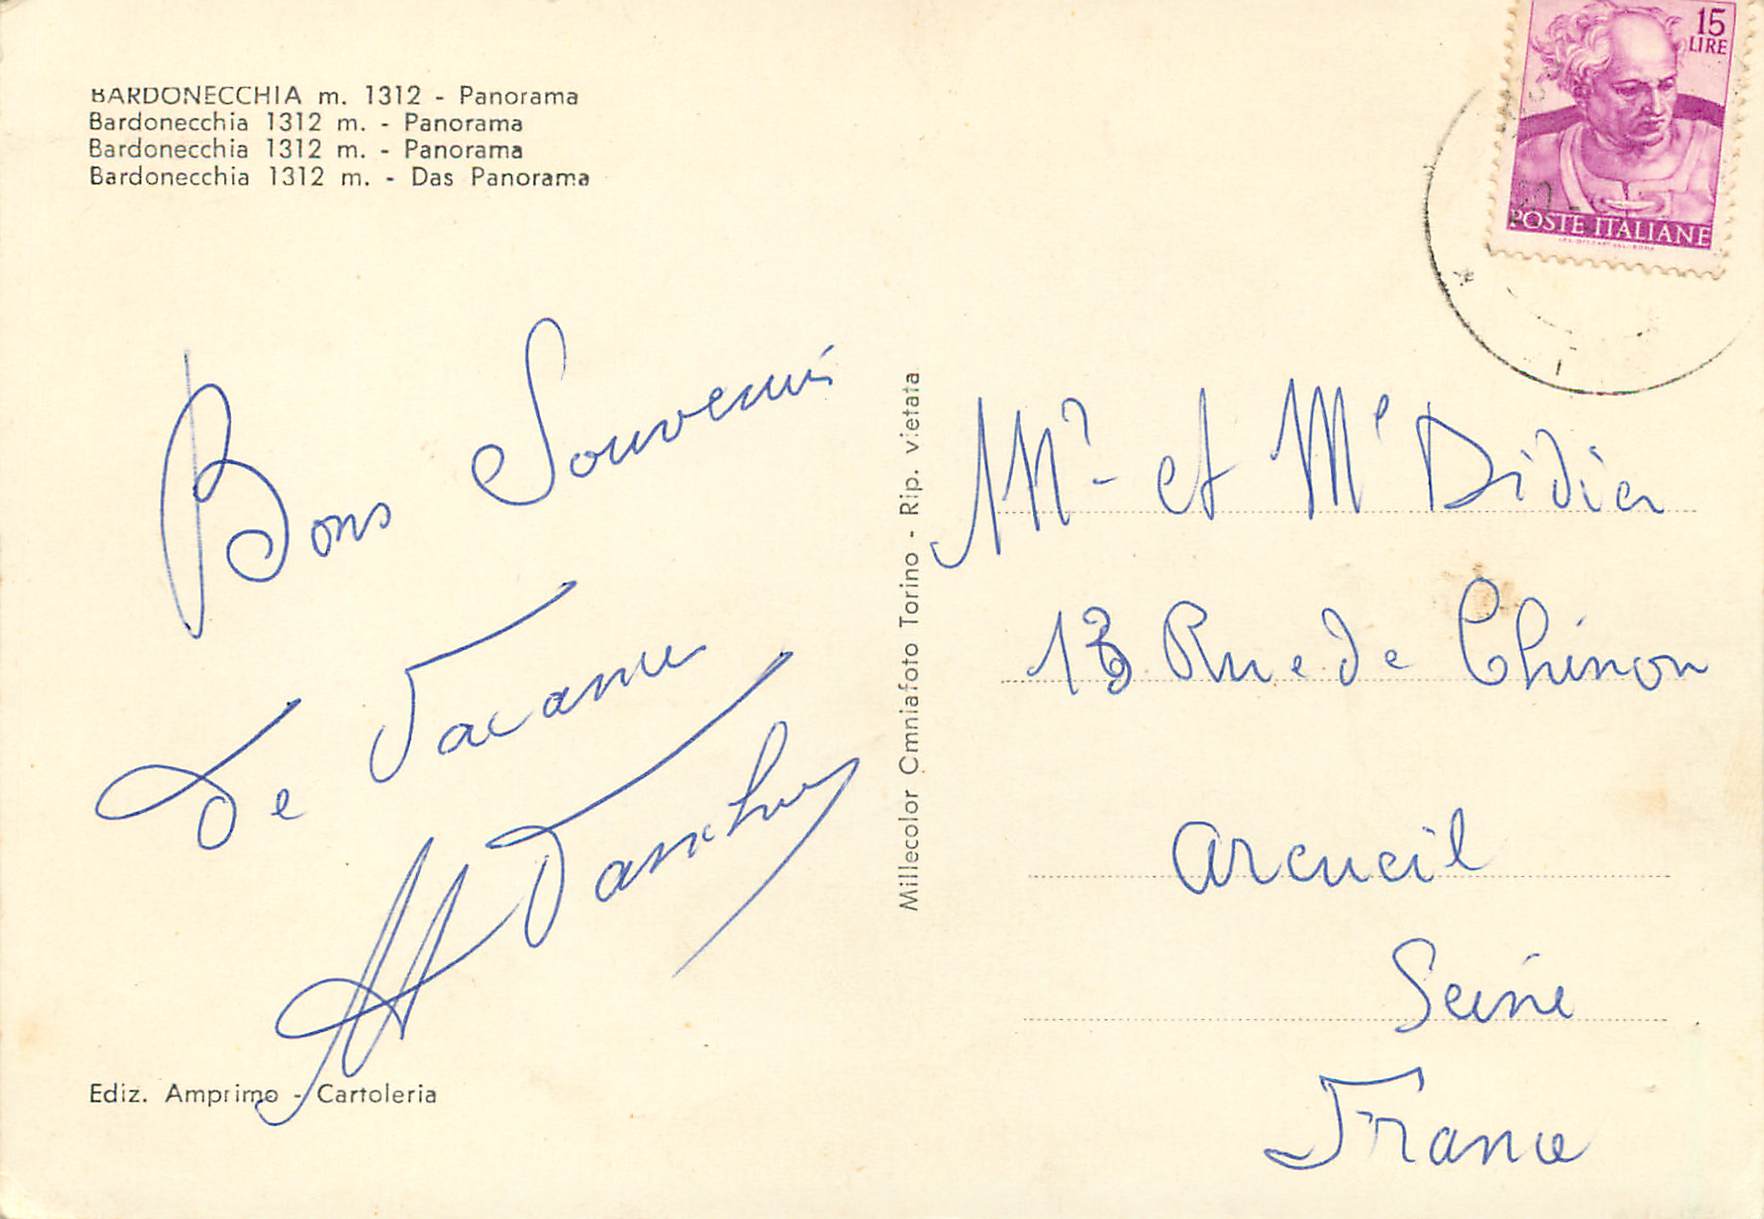 BARDONECCHIA m. 1312 - Panorama
Bardonecchia 1312 m. - Panorama
Bardonecchia 1312 m. - Panorama
Bardonecchia 1312 m. - Das Panorama
Bons Souvenirs
de Vacances
Ediz. Amprimo - Cartoleria
Millecolor Omniafoto Torino - Rip. vietata
15
LIRE
POSTE ITALIANE
Mr et Me Didier
13 Rue de Chinon
Arcueil
Seine
France